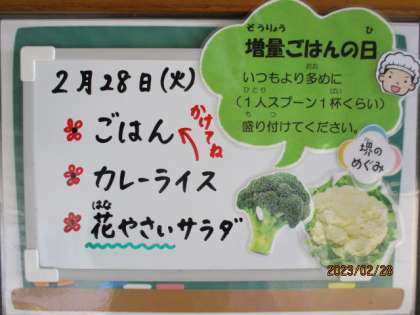 ぞうりょう ひ
増量ごはんの日
おお
いつもより多めに
ひとり ばい
（1人スプーン1杯くらい）
も つ
盛り付けてください。
堺の
めぐみ
2月28日(火)
ごはん
かけてね
カレーライス
はな
花やさいサラダ
2023/02/28